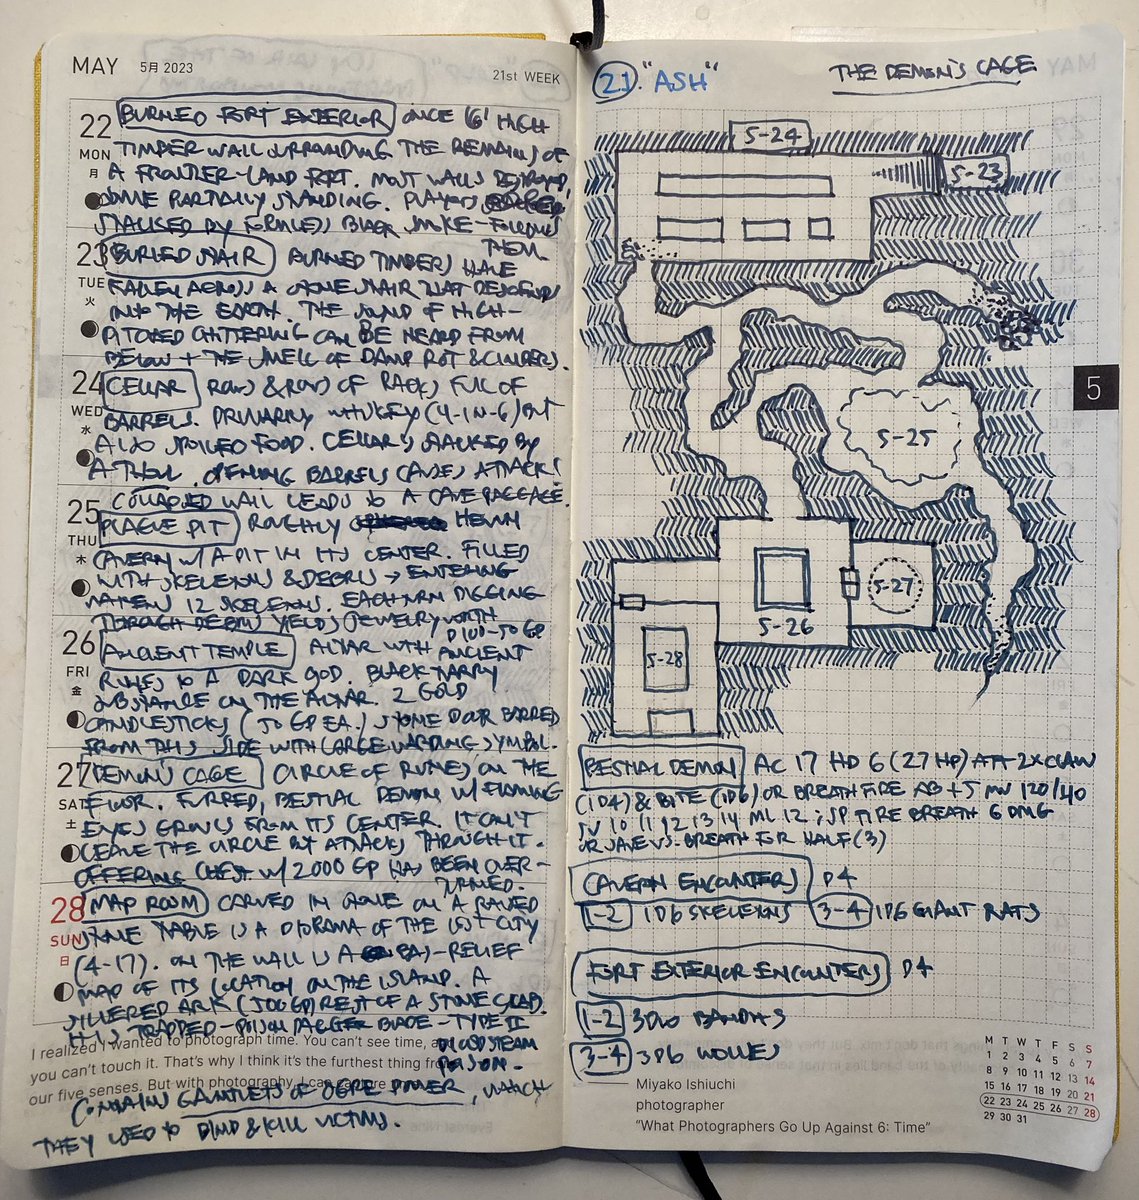 MAY 5月 2023
21st WEEK
22
MON
月
BURNED FORT EXTERIOR ONCE 16' HIGH
TIMBER WALL SURROUNDING THE REMAINS OF
A FRONTIER-LAND FORT. MOST WALLS DESTROYED
SOME PARTIALLY STANDING. PLAYERS
STALKED BY FORMLESS BLACK SMOKE - FOLLOWS
THEM
23
TUE
火
BURIED STAIR BURNED TIMBERS HAVE
FALLEN ACROSS A STONE STAIR THAT DESCENDS
INTO THE EARTH. THE SOUND OF HIGH-
PITCHED CHITTERING CAN BE HEARD FROM
BELOW + THE SMELL OF DAMP ROT & CINDERS.
24
WED
水
CELLAR ROWS & ROWS OF RACKS FULL OF
BARRELS. PRIMARILY WHISKEY (4-IN-6) BUT
ALSO SPOILED FOOD. CELLAR IS STALKED BY
OPENING BARRELS CAUSES ATTACK!
COLLAPSED WALL LEADS TO A CAVE PASSAGE.
25
THU
木
PLAGUE PIT ROUGHLY HEWN
CAVERN W/ A PIT IN ITS CENTER. FILLED
WITH SKELETONS & DEBRIS → ENTERING
WAKENS 12 SKELETONS. EACH TURN DIGGING
THROUGH DEBRIS YIELDS JEWELRY WORTH
D100-50 GP
26
FRI
金
ANCIENT TEMPLE ALTAR WITH ANCIENT
RUNES TO A DARK GOD. BLACK TARRY
SUBSTANCE ON THE ALTAR. 2 GOLD
CANDLESTICKS (50 GP EA.) STONE DOOR BARRED
FROM THIS SIDE WITH LARGE WARDING SYMBOL.
27
SAT
土
DEMON'S CAGE CIRCLE OF RUNES ON THE
FLOOR. FURRED, BESTIAL DEMON W/ FLAMING
EYES GROWLS FROM ITS CENTER. IT CAN'T
LEAVE THE CIRCLE BUT ATTACKS THROUGH IT.
OFFERING CHEST W/ 2000 GP HAS BEEN OVER-
TURNED.
28
SUN
日
MAP ROOM CARVED IN STONE ON A RAISED
STONE TABLE IS A DIORAMA OF THE LOST CITY
(4-17). ON THE WALL IS A BAS-RELIEF
MAP OF ITS LOCATION ON THE ISLAND. A
SILVERED ARK (500 GP) REST OF A STONE SLAB.
IT IS TRAPPED - POISON DAGGER BLADE - TYPE II
BLOODSTREAM
POISON.
I realized I wanted to photograph time. You can't see time,
you can't touch it. That's why I think it's the furthest thing from
our five senses. But with photography, I can
CONTAINS GAUNTLETS OF OGRE POWER, WHICH
THEY USED TO BIND & KILL VICTIMS.
21. "ASH"
THE DEMON'S CAGE
5-24
5-23
5
5-25
5-27
5-26
5-28
BESTIAL DEMON AC 17 HD 6 (27 HP) ATT 2X CLAW
(1D4) & BITE (1D6) OR BREATH FIRE AB +5 MV 120/40
SV 10 11 12 13 14 ML 12; SP FIRE BREATH 6 DMG
OR SAVE VS. BREATH FOR HALF (3)
CAVERN ENCOUNTERS D4
1-2 1D6 SKELETONS 3-4 1D6 GIANT RATS
FORT EXTERIOR ENCOUNTERS D4
1-2 3D10 BANDITS
3-4 3D6 WOLVES
Miyako Ishiuchi
photographer
"What Photographers Go Up Against 6: Time"
M T W T F S S
1 2 3 4 5 6 7
8 9 10 11 12 13 14
15 16 17 18 19 20 21
22 23 24 25 26 27 28
29 30 31